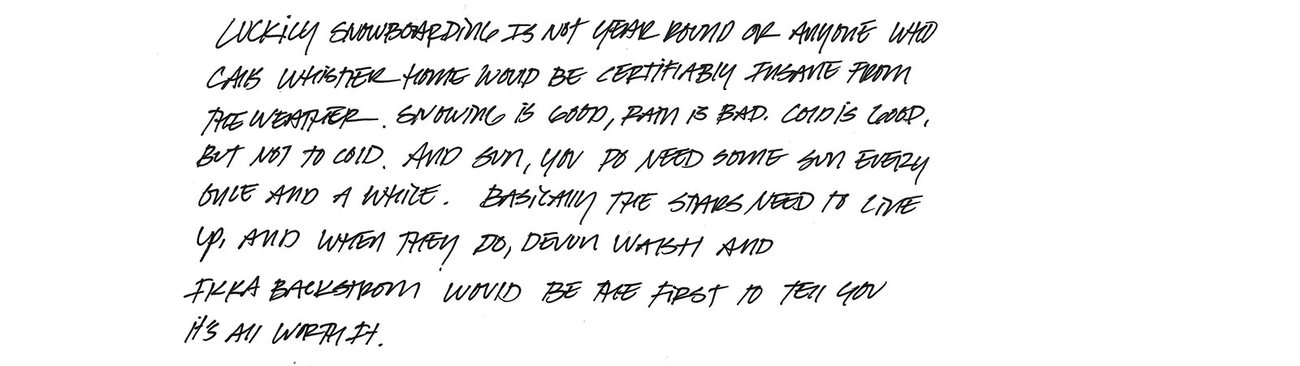 LUCKILY SNOWBOARDING IS NOT YEAR ROUND OR ANYONE WHO
CALLS WHISTLER HOME WOULD BE CERTIFIABLY INSANE FROM
THE WEATHER. SNOWING IS GOOD, RAIN IS BAD. COLD IS GOOD,
BUT NOT TO COLD. AND SUN, YOU DO NEED SOME SUN EVERY
ONCE AND A WHILE. BASICALLY THE STARS NEED TO LINE
UP, AND WHEN THEY DO, DEVUN WALSH AND
IKKA BACKSTROM WOULD BE THE FIRST TO TELL YOU
IT'S ALL WORTH IT.